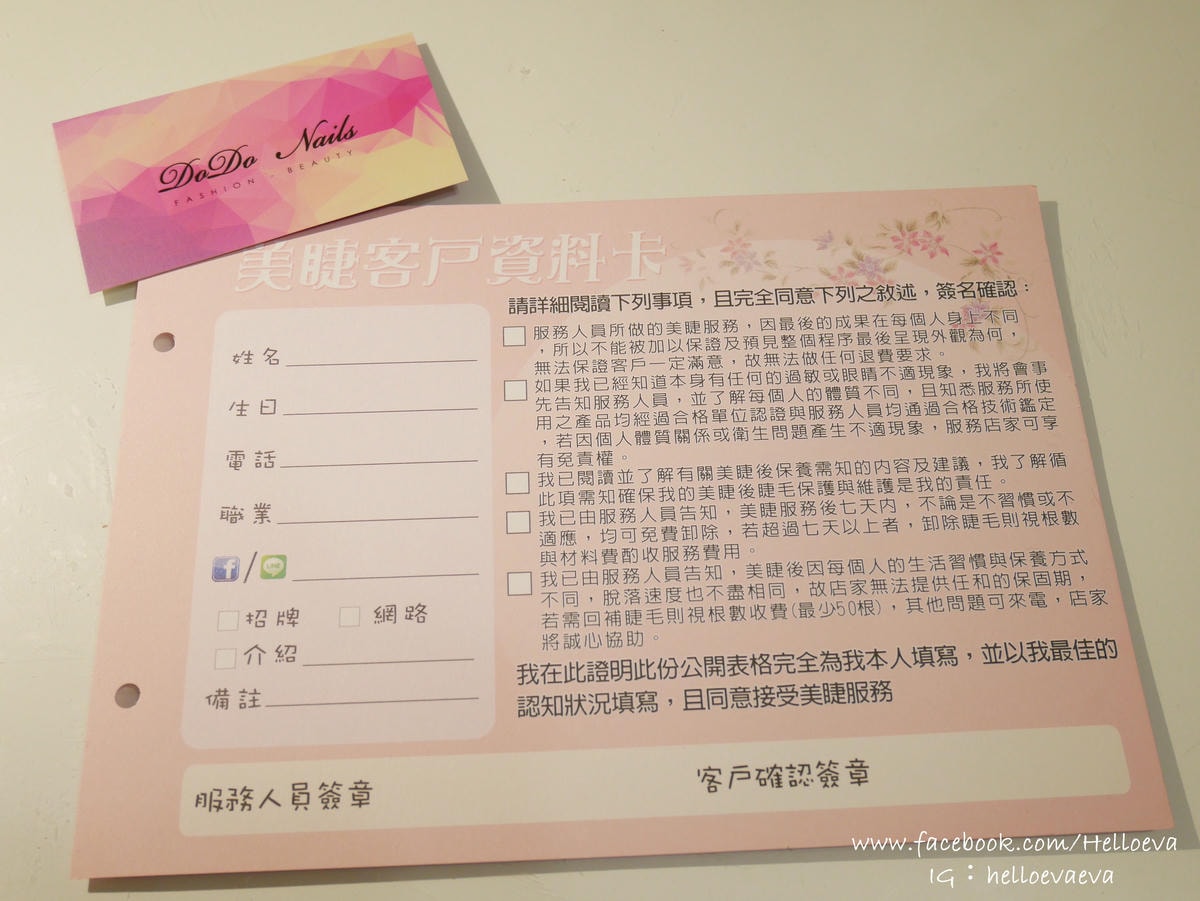 DoDo Nails
FASHION . BEAUTY
美睫客戶資料卡
姓名
生日
電話
職業
f/LINE
招牌 網路
介紹
備註
請詳細閱讀下列事項，且完全同意下列之敘述，簽名確認：
服務人員所做的美睫服務，因最後的成果在每個人身上不同
，所以不能被加以保證及預見整個程序最後呈現外觀為何，
無法保證客戶一定滿意，故無法做任何退費要求。
如果我已經知道本身有任何的過敏或眼睛不適現象，我將會事
先告知服務人員，並了解每個人的體質不同，且知悉服務所使
用之產品均經過合格單位認證與服務人員均通過合格技術鑑定
，若因個人體質關係或衛生問題產生不適現象，服務店家可享
有免責權。
我已閱讀並了解有關美睫後保養需知的內容及建議，我了解循
此項需知確保我的美睫後睫毛保護與維護是我的責任。
我已由服務人員告知，美睫服務後七天內，不論是不習慣或不
適應，均可免費卸除，若超過七天以上者，卸除睫毛則視根數
與材料費酌收服務費用。
我已由服務人員告知，美睫後因每個人的生活習慣與保養方式
不同，脫落速度也不盡相同，故店家無法提供任和的保固期，
若需回補睫毛則視根數收費(最少50根)，其他問題可來電，店家
將誠心協助。
我在此證明此份公開表格完全為我本人填寫，並以我最佳的
認知狀況填寫，且同意接受美睫服務
服務人員簽章
客戶確認簽章
www.facebook.com/Helloeva
IG：helloevaeva